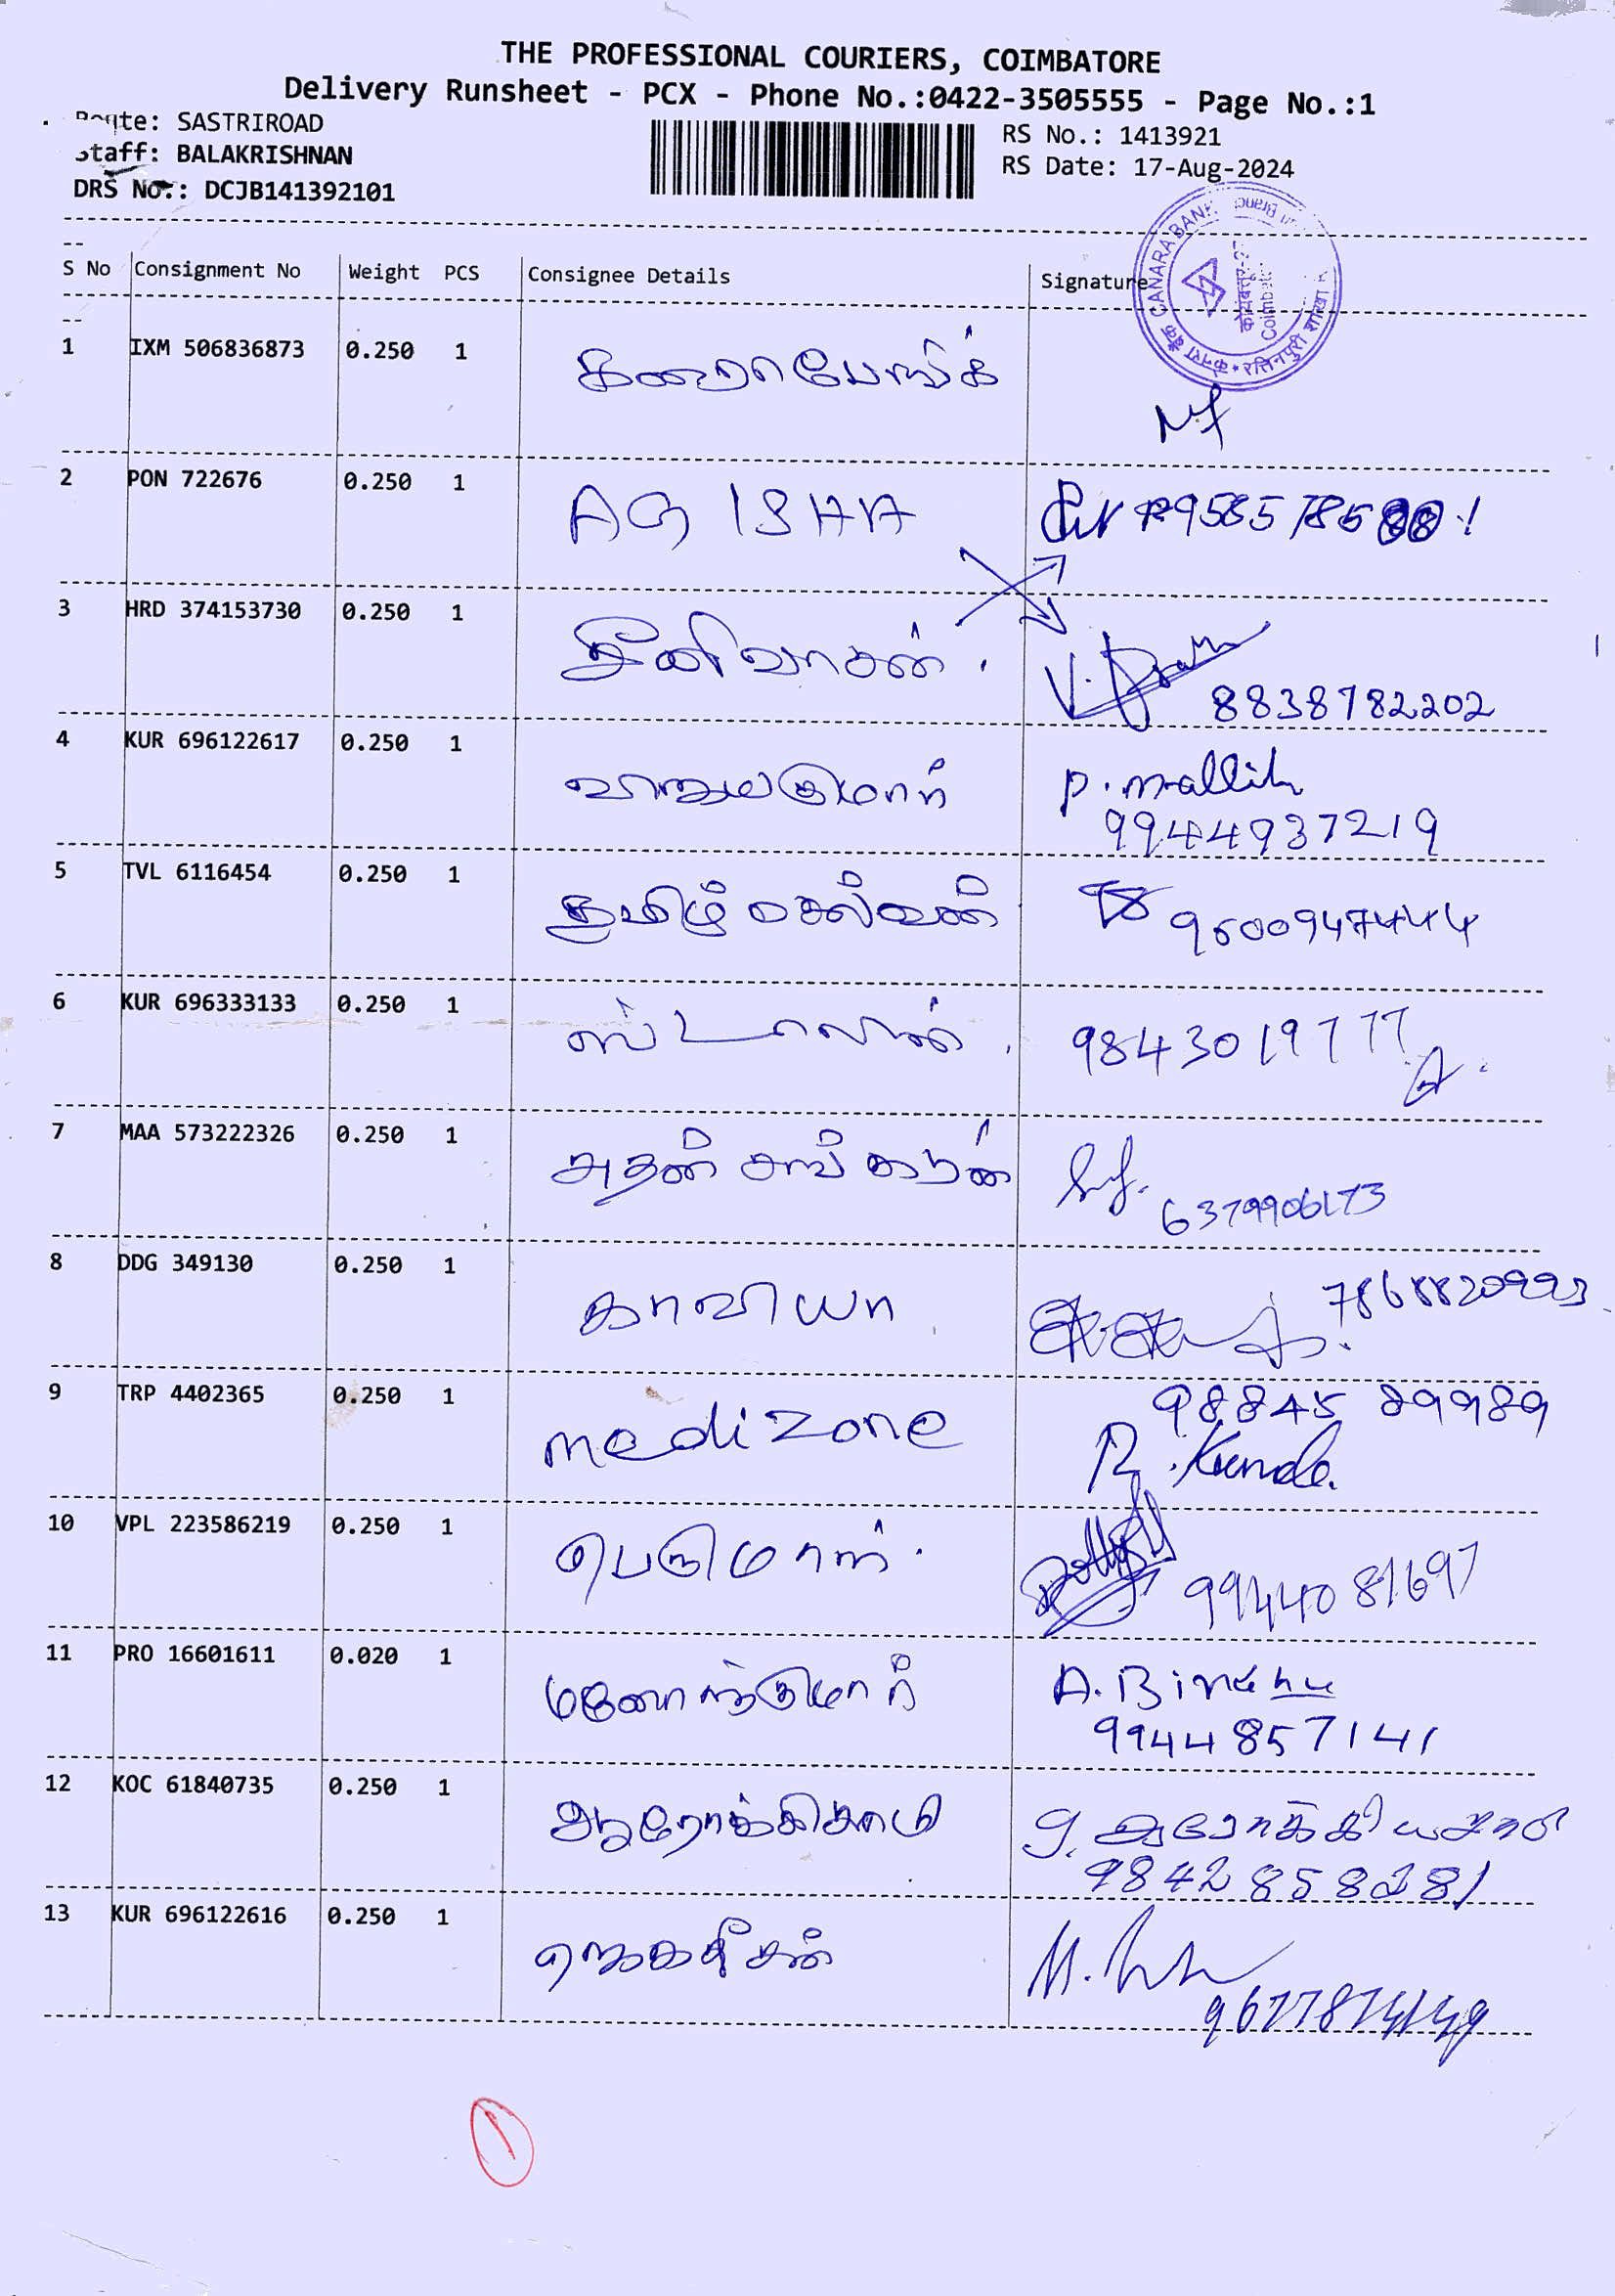 THE PROFESSIONAL COURIERS, COIMBATORE
Delivery Runsheet - PCX - Phone No.:0422-3505555 - Page No.:1
Route: SASTRIROAD
RS No.: 1413921
Staff: BALAKRISHNAN
RS Date: 17-Aug-2024
DRS No.: DCJB141392101
CANARA BANK
S No Consignment No Weight PCS Consignee Details Signature
1 IXM 506836873 0.250 1
2 PON 722676 0.250 1 AG ISHA
3 HRD 374153730 0.250 1 சீனிவாசன்
8838782202
4 KUR 696122617 0.250 1 P. Mallik
9944937219
5 TVL 6116454 0.250 1 தமிழ் செல்வன் 9600947444
6 KUR 696333133 0.250 1 ஸ்டாலின் 9843019777
7 MAA 573222326 0.250 1 6379906173
8 DDG 349130 0.250 1 காவியா
9 TRP 4402365 0.250 1 medizone 98845 89989
10 VPL 223586219 0.250 1 பெருமாள் 9944081697
11 PRO 16601611 0.020 1 A. Bindhu
9944857141
12 KOC 61840735 0.250 1
13 KUR 696122616 0.250 1 ஜெகதீசன்
1